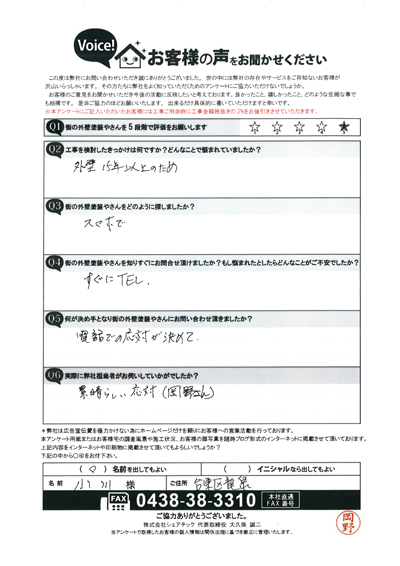 Voice!
お客様の声をお聞かせください
この度は弊社にお問い合わせいただき誠にありがとうございました。世の中には弊社の存在やサービスをご存知なお客様が
沢山いらっしゃいます。その方たちに弊社をよく知っていただくためのアンケートにご協力いただけないでしょうか。
お客様のご意見をお聞かせいただき今後の活動に反映したいと考えております。良かったこと、嬉しかったこと、どのような些細な事で
も結構です。是非ご協力のほどお願いいたします。出来るだけ具体的に書いていただけますと幸いです。
※本アンケートにご記入いただいたお客様には工事ご用命時に工事金額税抜きの2%をお値引きさせていただきます。
Q1 街の外壁塗装やさんを5段階で評価をお願いします ☆ ☆ ☆ ☆ ★
Q2 工事を検討したきっかけは何ですか?どんなことで悩まれていましたか?
外壁 15年以上のため
Q3 街の外壁塗装やさんをどのように探しましたか?
スマホで
Q4 街の外壁塗装やさんを知りすぐにお問合せ頂けましたか?もし悩まれたとしたらどんなことがご不安でしたか?
すぐにTEL.
Q5 何が決め手となり街の外壁塗装やさんにお問い合わせ頂きましたか?
電話での応対が決めて.
Q6 実際に弊社担当者がお伺いしていかがでしたか?
素晴らしい応対(岡野さん)
*弊社は広告宣伝費を極力かけない為にホームページだけを頼りにお客様への営業活動を行っております。
本アンケート用紙またはお客様宅の調査風景や施工状況、お客様の顔写真を随時ブログ形式のインターネットに掲載させて頂いております。
上記内容をインターネットや印刷物に掲載させて頂いてもよろしいでしょうか?
下記の中から〇印をお付下さい。
( ) 名前を出してもよい ( ) イニシャルなら出してもよい
名前 小川 様 ご住所 台東区
FAX 0438-38-3310 本社直通 FAX 番号
ご協力ありがとうございました。
株式会社シェアテック 代表取締役 大久保 誠二
当アンケートで取得したお客様の個人情報は関係法令に基づき厳正に管理いたします。
岡野